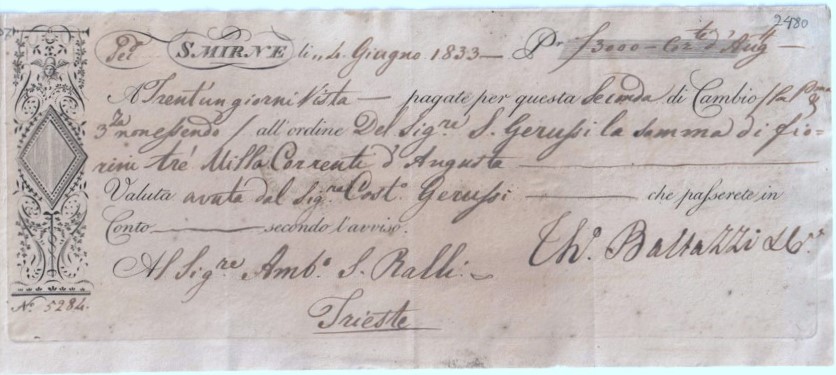 2480
Per SMIRNE li 4 Giugno 1833 — Pr f 3000 — Corte d'Augta —
A Trent'un giorni Vista — pagate per questa Seconda di Cambio / la Prima o
3za non essendo / all'ordine Del Sigre S. Gerussi la somma di fio-
rini tre Milla Correnti d'Augusta
Valuta avuta dal Sigre Costo Gerussi che passerete in
Conto secondo l'avviso.
Tho. Baltazzi & Co.
Al Sigre Ambo S. Ralli
Trieste
No. 5284.